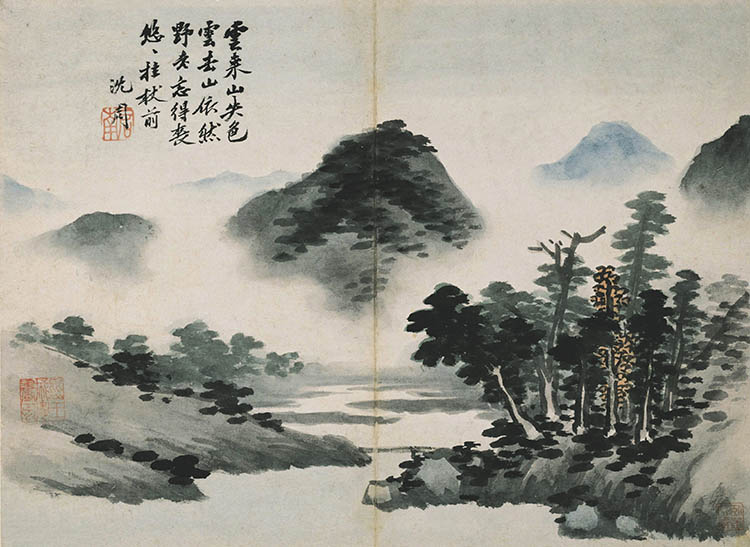 雲来山失色
雲去山依然
野老忘得喪
悠〻拄杖前
沈周